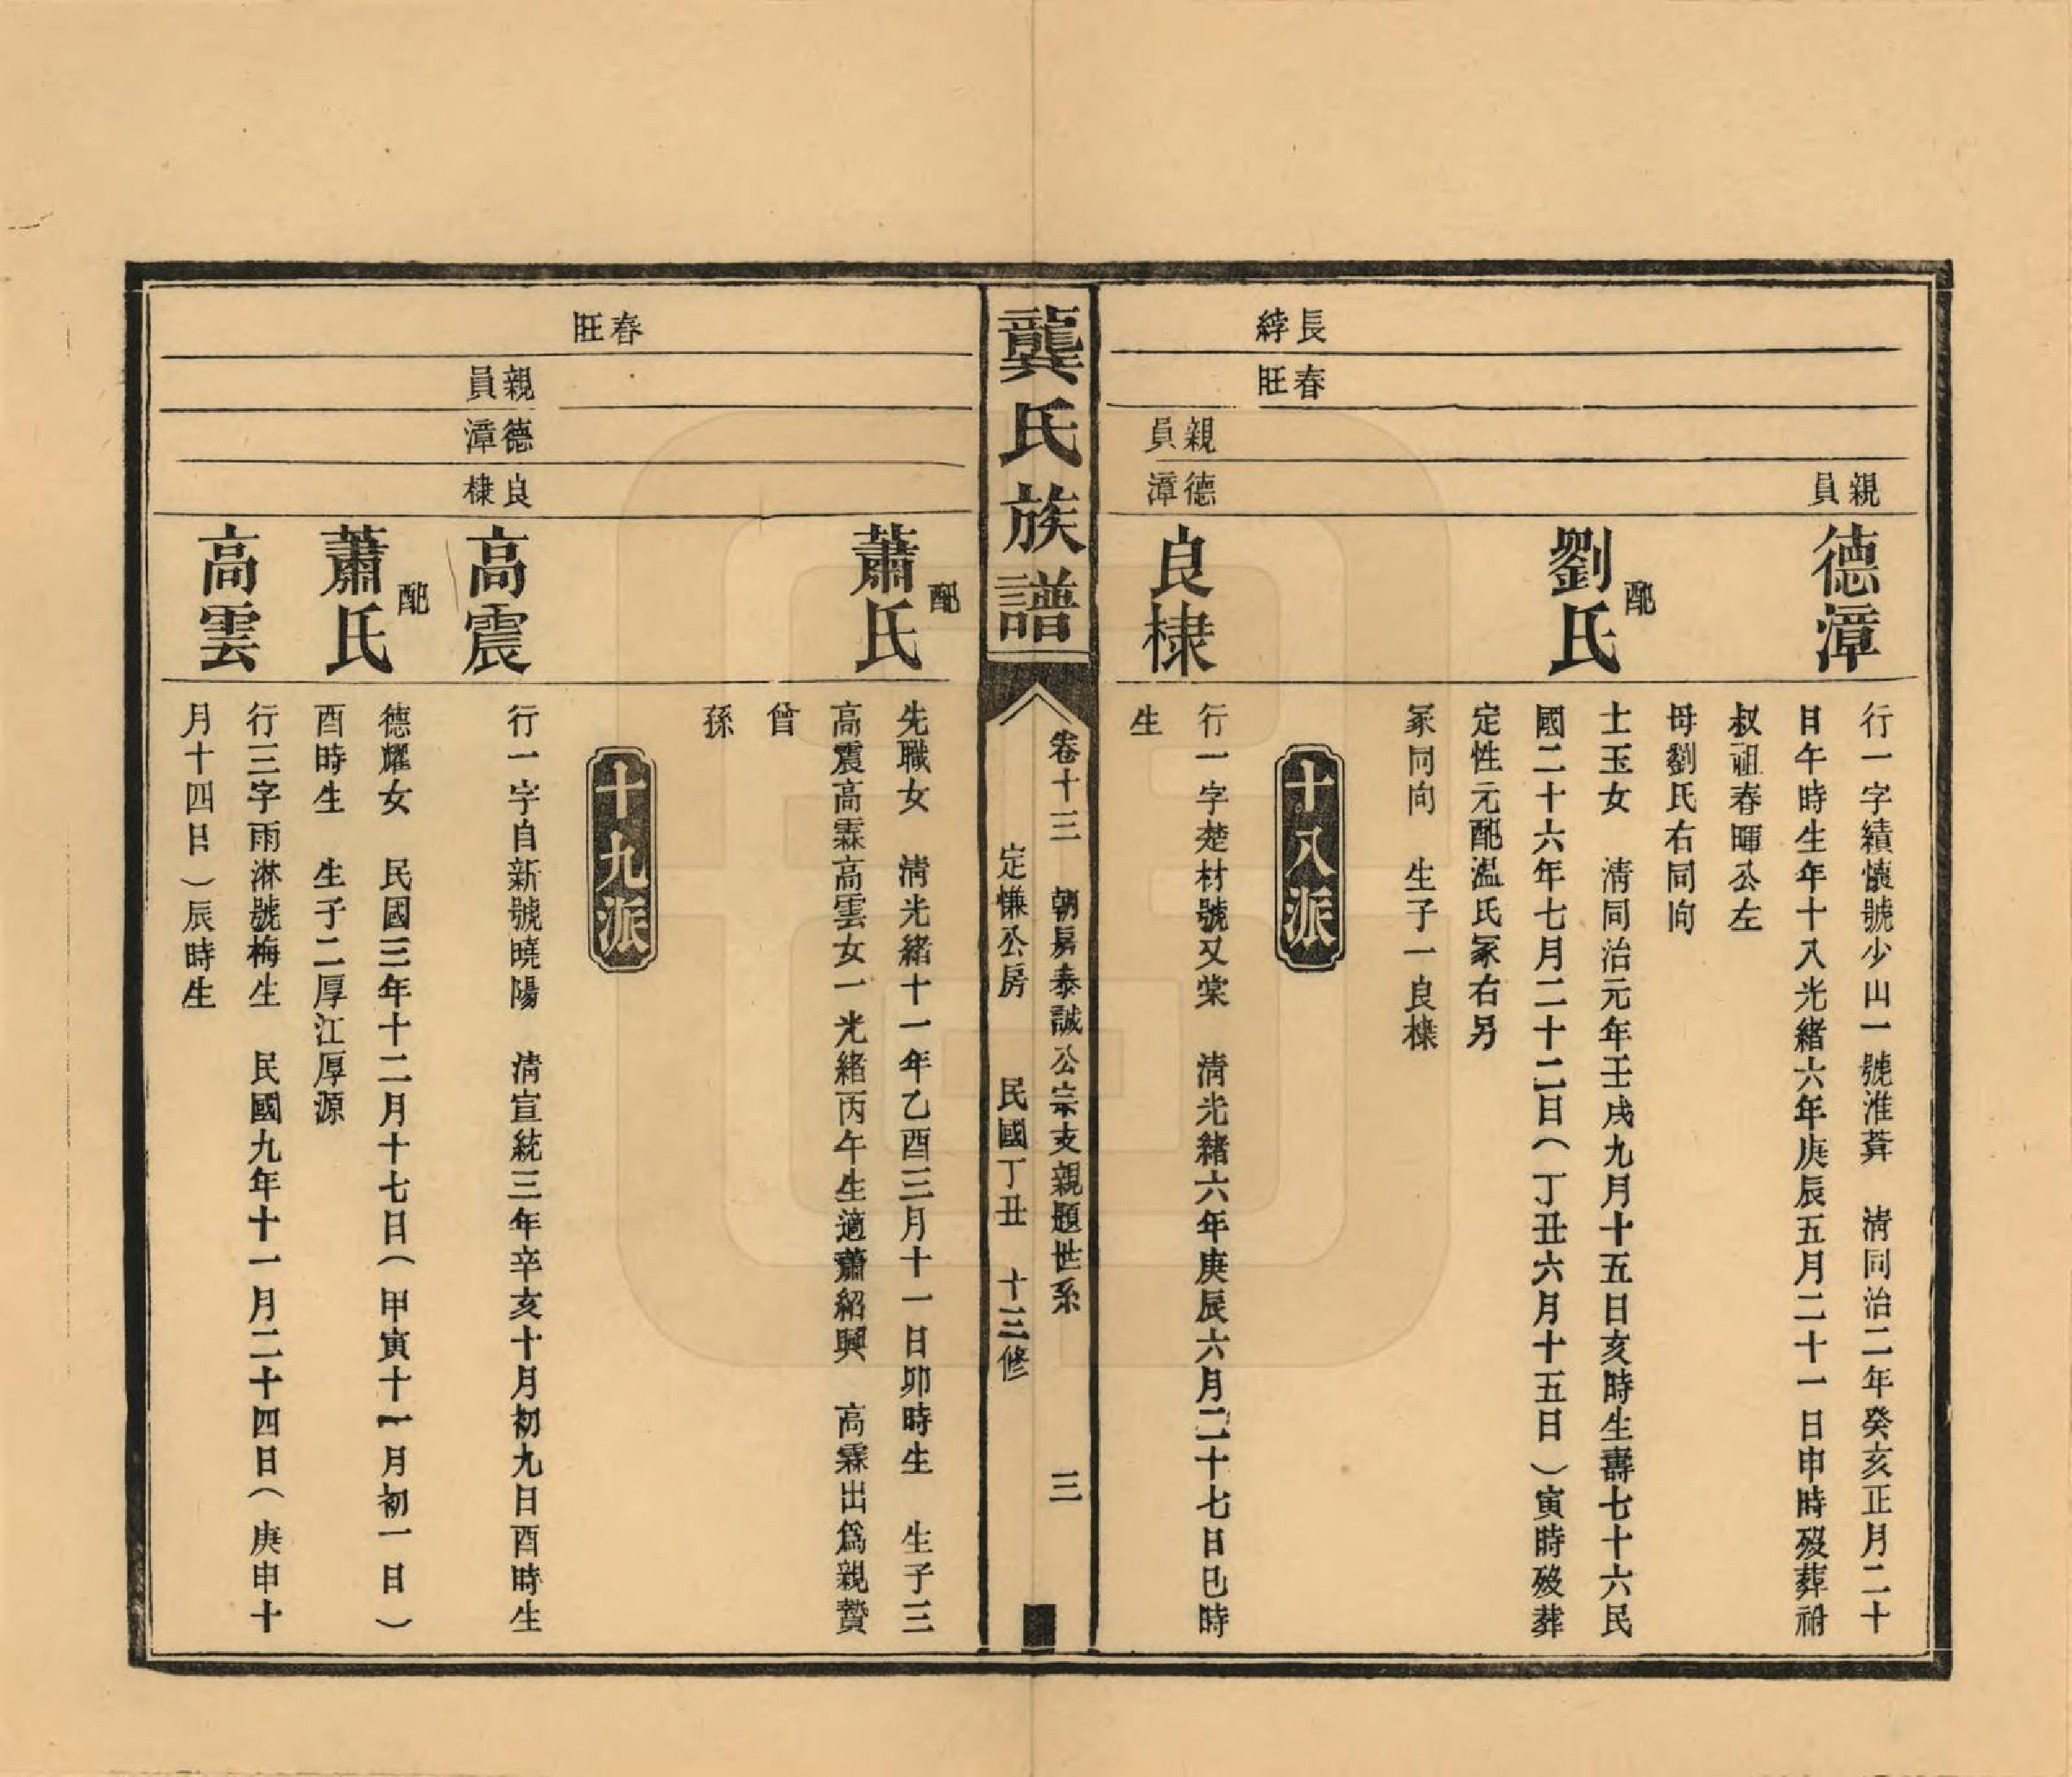 親員
德漳
行一字績懷號少山一號淮葊　清同治二年癸亥正月二十
日午時生年十八光緒六年庚辰五月二十一日申時歿葬祔
叔祖春暉公左
母劉氏右同向
配
劉氏
士玉女　清同治元年壬戌九月十五日亥時生壽七十六民
國二十六年七月二十二日（丁丑六月十五日）寅時歿葬
定性元配温氏冢右另
冢同向　生子一良棣
長綍
春旺
十八派
親員
德漳
良棣
行一字楚材號又棠　清光緒六年庚辰六月二十七日巳時
生
龔氏族譜
卷十三　朝房泰誠公宗支親題世系　三
定慊公房　民國丁丑　十三修
配
蕭氏
先職女　清光緒十一年乙酉三月十一日卯時生　生子三
高震高霖高雲女一光緒丙午生適蕭紹興　高霖出爲親贊
曾
孫
春旺
十九派
親員
德漳
良棣
高震
行一字自新號曉陽　清宣統三年辛亥十月初九日酉時生
配
蕭氏
德耀女　民國三年十二月十七日（甲寅十一月初一日）
酉時生　生子二厚江厚源
高雲
行三字雨淋號梅生　民國九年十一月二十四日（庚申十
月十四日）辰時生